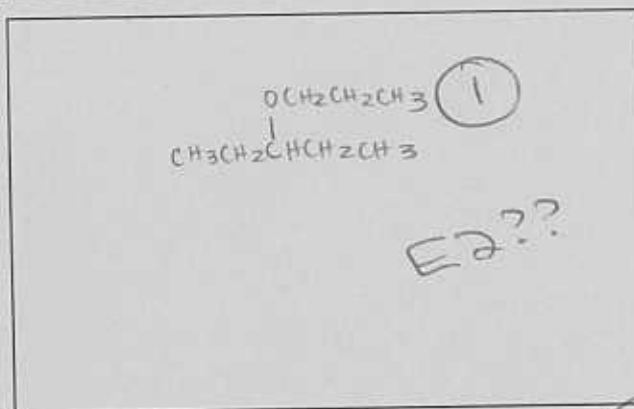 OCH2CH2CH3 1
CH3CH2CHCH2CH3
E2??